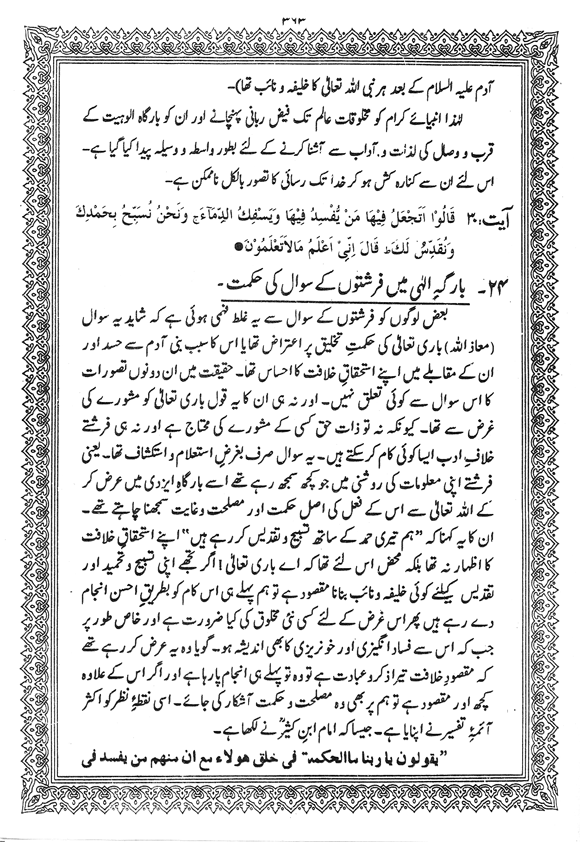 ۳۶۳
آدم علیہ السلام کے بعد ہر نبی اللہ تعالیٰ کا خلیفہ و نائب تھا)۔
لہٰذا انبیائے کرام کو مخلوقات عالم تک فیض ربانی پہنچانے اور ان کو بارگاہ الوہیت کے
قرب و وصال کی لذات و آداب سے آشنا کرنے کے لئے بطور واسطہ و وسیلہ پیدا کیا گیا ہے۔
اس لئے ان سے کنارہ کش ہو کر خدا تک رسائی کا تصور بالکل ناممکن ہے۔
آیت:۳۰ قَالُوْا اَتَجْعَلُ فِيْهَا مَنْ يُّفْسِدُ فِيْهَا وَيَسْفِكُ الدِّمَآءَ ج وَنَحْنُ نُسَبِّحُ بِحَمْدِكَ
وَنُقَدِّسُ لَكَ ط قَالَ اِنِّىْ اَعْلَمُ مَالَاتَعْلَمُوْنَ●
۲۴۔ بارگہِ الٰہی میں فرشتوں کے سوال کی حکمت ۔
بعض لوگوں کو فرشتوں کے سوال سے یہ غلط فہمی ہوئی ہے کہ شاید یہ سوال
(معاذ اللہ) باری تعالیٰ کی حکمتِ تخلیق پر اعتراض تھا یا اس کا سبب بنی آدم سے حسد اور
ان کے مقابلے میں اپنے استحقاقِ خلافت کا احساس تھا۔ حقیقت میں ان دونوں تصورات
کا اس سوال سے کوئی تعلق نہیں۔ اور نہ ہی ان کا یہ قول باری تعالیٰ کو مشورے کی
غرض سے تھا۔ کیونکہ نہ تو ذات حق کسی کے مشورے کی محتاج ہے اور نہ ہی فرشتے
خلافِ ادب ایسا کوئی کام کرسکتے ہیں۔ یہ سوال صرف بغرضِ استعلام و استکشاف تھا۔ یعنی
فرشتے اپنی معلومات کی روشنی میں جو کچھ سمجھ رہے تھے اسے بارگاہِ ایزدی میں عرض کر
کے اللہ تعالیٰ سے اس کے فعل کی اصل حکمت اور مصلحت و غایت سمجھنا چاہتے تھے۔
ان کا یہ کہنا کہ ”ہم تیری حمد کے ساتھ تسبیح و تقدیس کر رہے ہیں“ اپنے استحقاقِ خلافت
کا اظہار نہ تھا بلکہ محض اس لئے تھا کہ اے باری تعالیٰ! اگر تجھے اپنی تسبیح و تحمید اور
تقدیس کیلئے کوئی خلیفہ و نائب بنانا مقصود ہے تو ہم پہلے ہی اس کام کو بطریقِ احسن انجام
دے رہے ہیں پھر اس غرض کے لئے کسی نئی مخلوق کی کیا ضرورت ہے اور خاص طور پر
جب کہ اس سے فساد انگیزی اور خونریزی کا بھی اندیشہ ہو۔ گویا وہ یہ عرض کر رہے تھے
کہ مقصودِ خلافت تیرا ذکر و عبادت ہے تو وہ تو پہلے ہی انجام پارہا ہے اور اگر اس کے علاوہ
کچھ اور مقصود ہے تو ہم پر بھی وہ مصلحت و حکمت آشکار کی جائے۔ اسی نقطۂ نظر کو اکثر
آئمۂ تفسیر نے اپنایا ہے۔ جیساکہ امام ابنِ کثیرؒ نے لکھا ہے۔
”يقولون يا ربنا ماالحكمة فى خلق هولاء مع ان منهم من يفسد فى